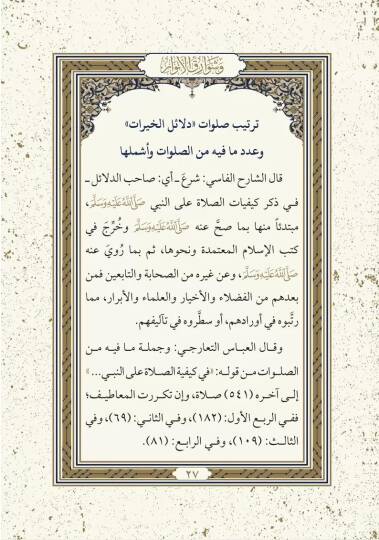 وشوارق الأنوار
ترتيب صلوات «دلائل الخيرات»
وعدد ما فيه من الصلوات وأشملها
قال الشارح الفاسي: شرعَ ـ أي: صاحب الدلائل ـ
في ذكر كيفيات الصلاة على النبي صَلَّى اللهُ عَلَيْهِ وَسَلَّمَ،
مبتدئاً منها بما صحَّ عنه صَلَّى اللهُ عَلَيْهِ وَسَلَّمَ وخُرِّجَ في
كتب الإسلام المعتمدة ونحوها، ثم بما رُويَ عنه
صَلَّى اللهُ عَلَيْهِ وَسَلَّمَ، وعن غيره من الصحابة والتابعين فمن
بعدهم من الفضلاء والأخيار والعلماء والأبرار، مما
رتَّبوه في أورادهم، أو سطَّروه في تآليفهم.
وقال العباس التعارجي: وجملة ما فيه من
الصلوات من قوله: «في كيفية الصلاة على النبي...»
إلى آخره (٥٤١) صلاة، وإن تكررت المعاطيف؛
ففي الربع الأول: (١٨٢)، وفي الثاني: (٦٩)، وفي
الثالث: (١٠٩)، وفي الرابع: (٨١).
٢٧